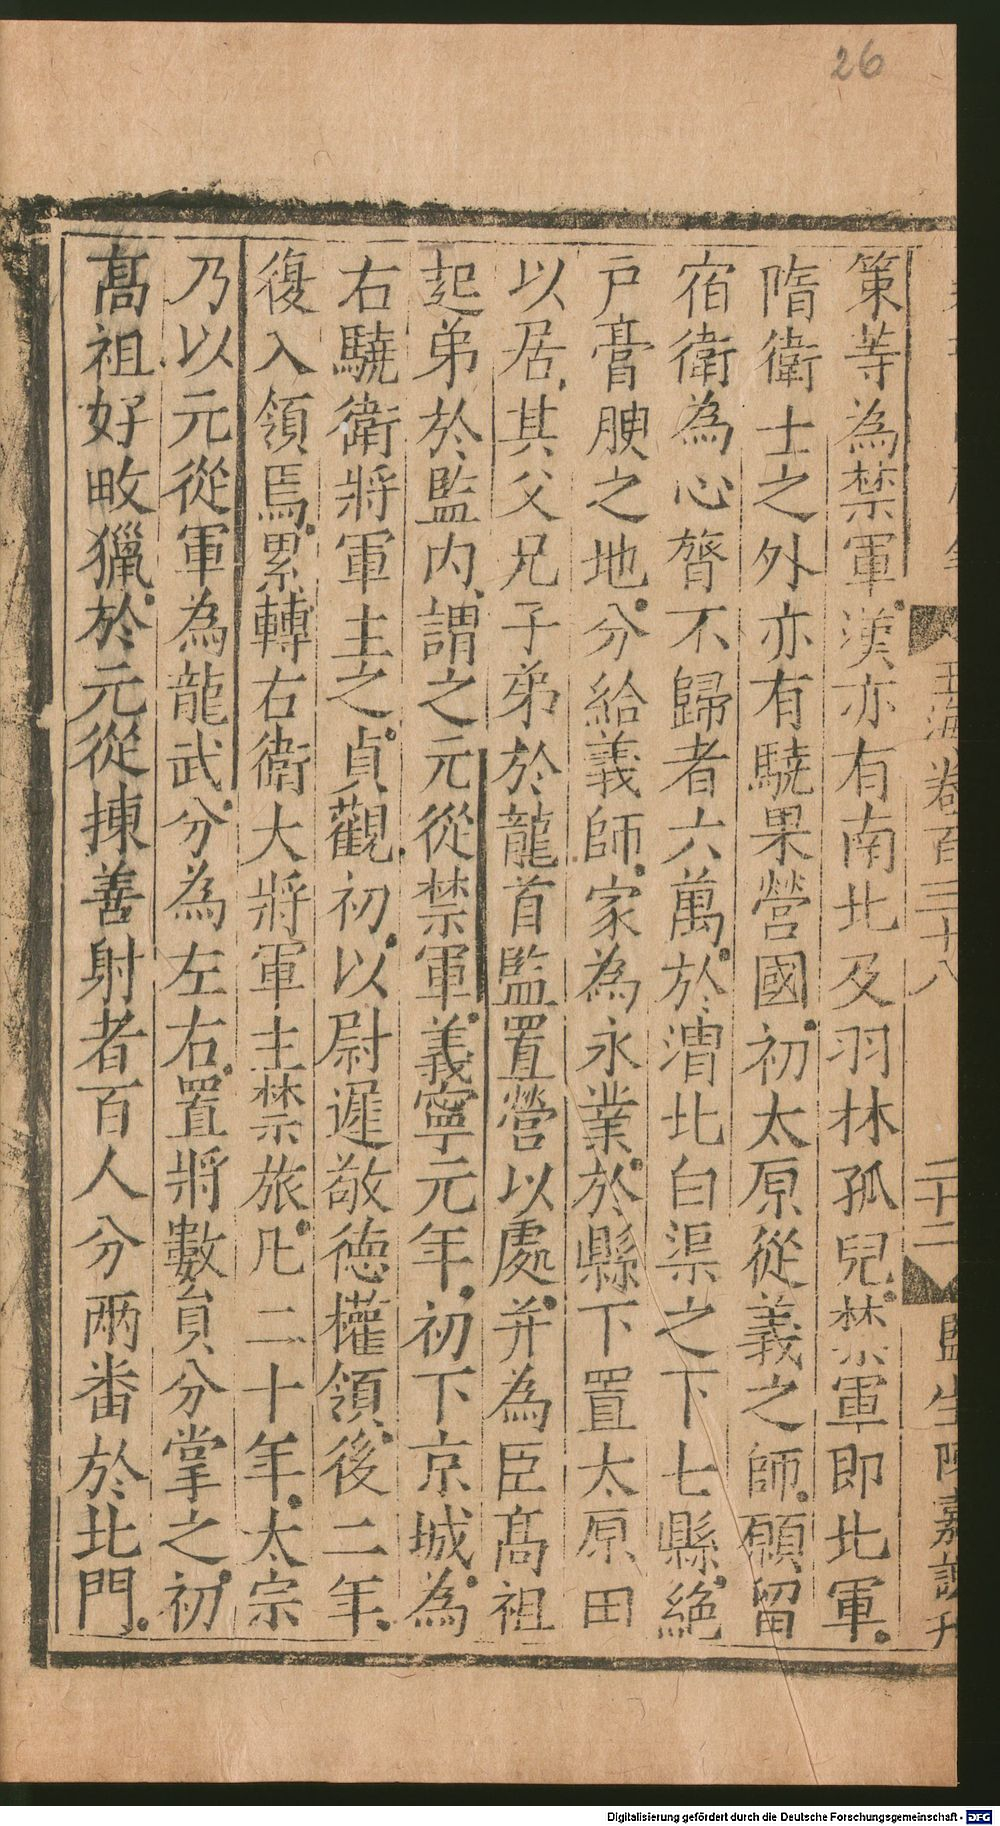 26
玉海卷百三十八
二十二
監生陳嘉謨刊
策等為禁軍漢亦有南北及羽林孤兒禁軍即北軍
隋衛士之外亦有驍果營國初太原從義之師願留
宿衛為心膂不歸者六萬於渭北白渠之下七縣絕
戶膏腴之地分給義師家為永業於縣下置太原田
以居其父兄子弟於龍首監置營以處并為臣髙祖
起弟於監内謂之元從禁軍義寧元年初下京城為
右驍衛將軍主之貞觀初以尉遲敬德權領後二年
復入領焉累轉右衛大將軍主禁旅凡二十年太宗
乃以元從軍為龍武分為左右置將數員分掌之初
髙祖好畋獵於元從揀善射者百人分兩番於北門
Digitalisierung gefördert durch die Deutsche Forschungsgemeinschaft - DFG